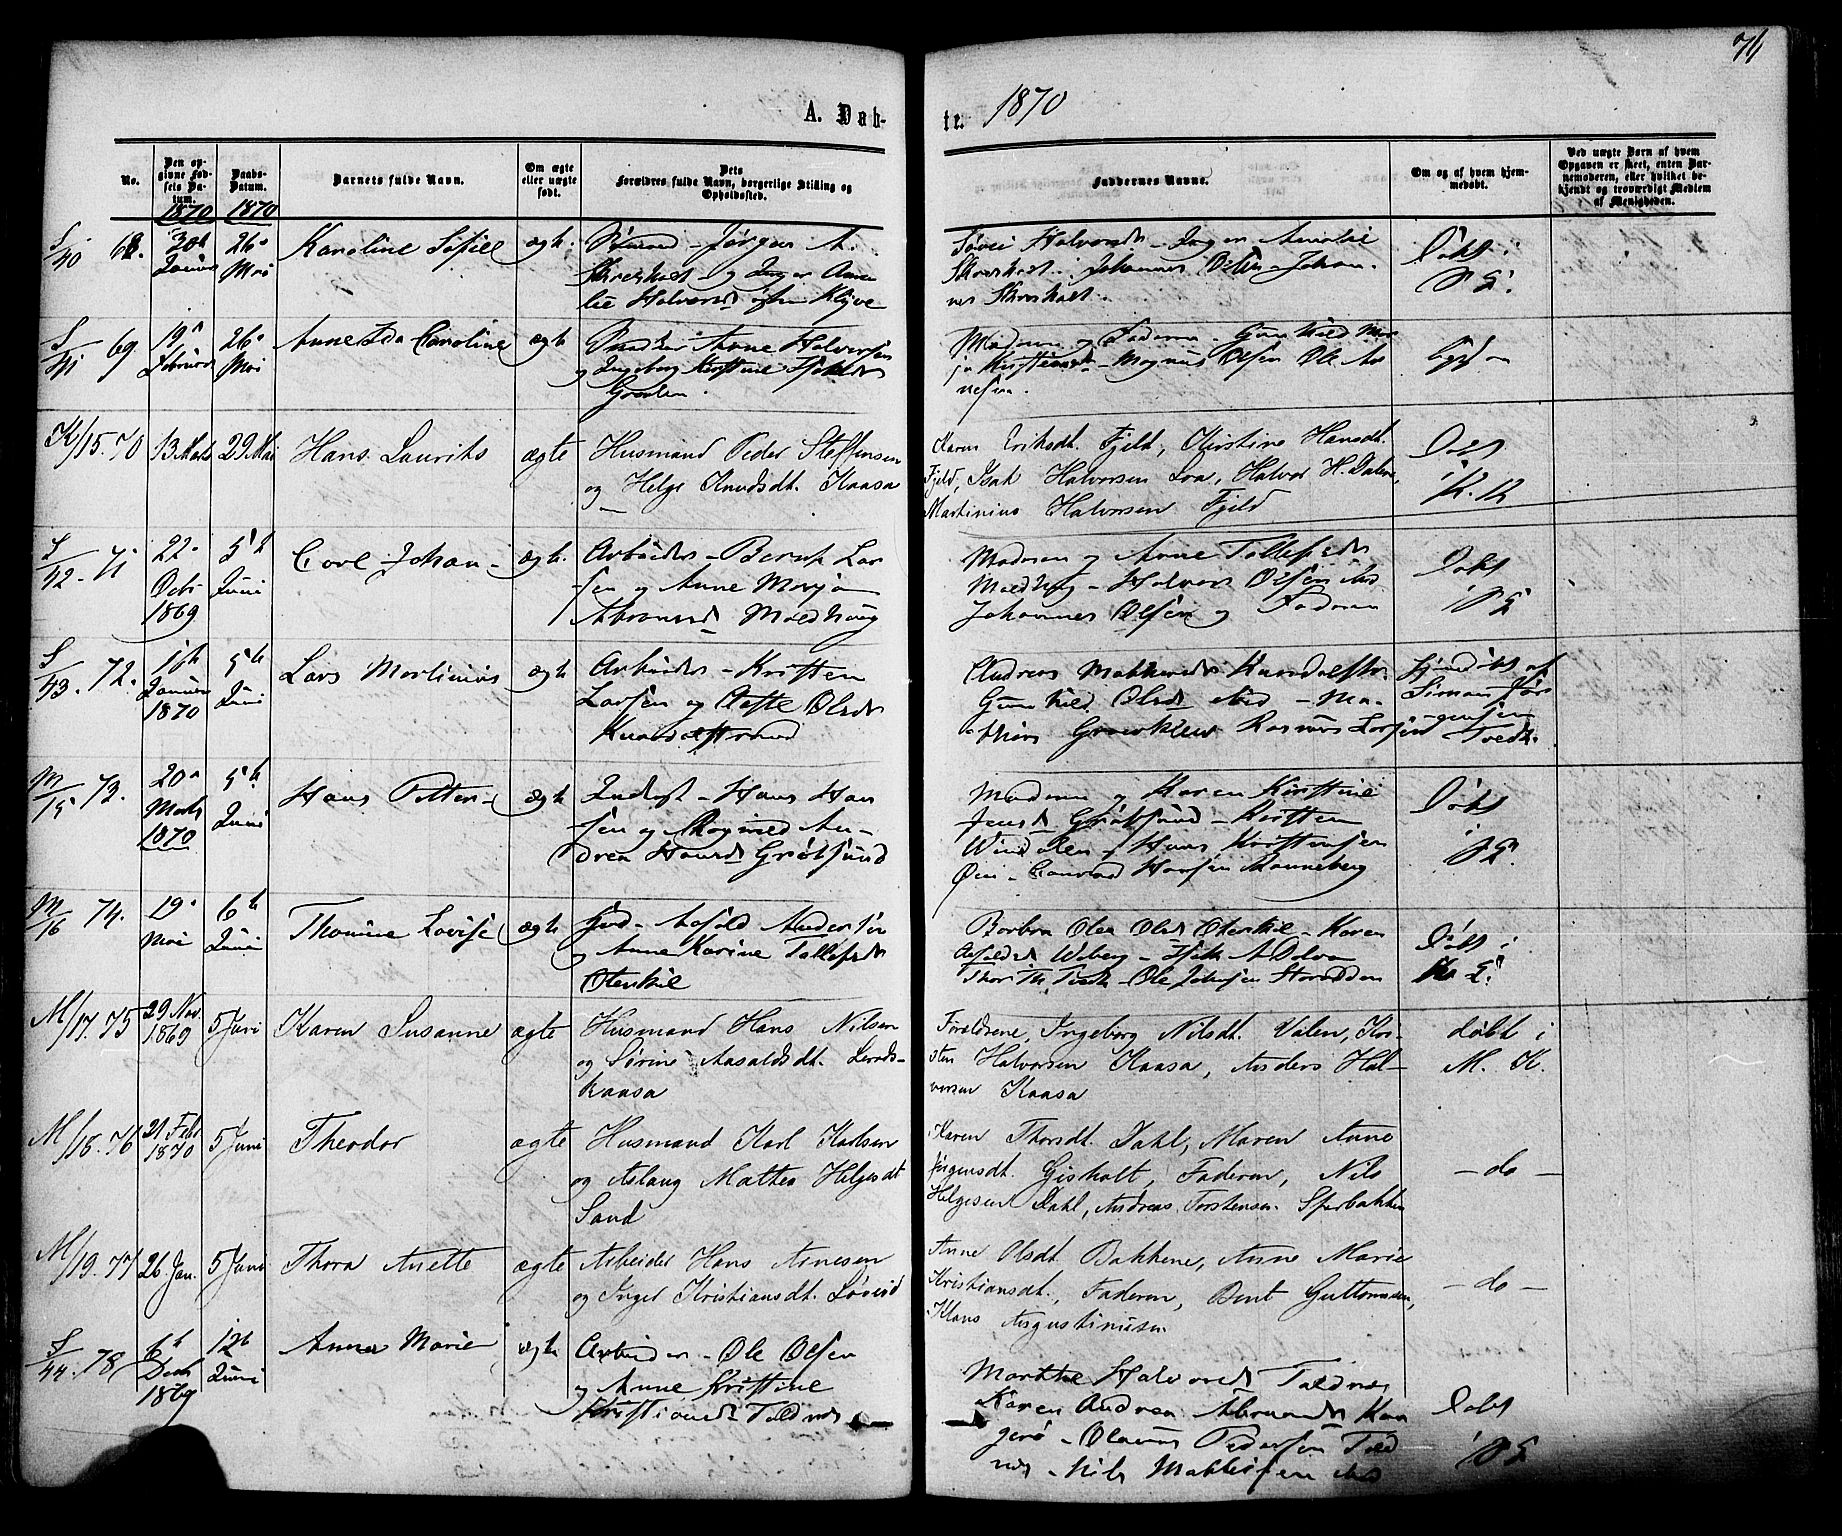 74
A. Døb-
te. 1870
No.
Den op-
givne Fød-
sels Da-
tum.
1870
Daabs-
Datum.
1870
Barnets fulde Navn.
Om ægte
eller uægte
født.
Dets
Forældres fulde Navn, borgerlige Stilling og
Opholdssted.
Faddernes Navne.
Om og af hvem hjem-
medøbt.
Ved uægte Børn af hvem
Opgaven er skeet, enten Bar-
nemoderen, eller hvilket be-
kjendt og troværdigt Medlem
af Menigheden.
S/40 68. 30te
Januar
26de
Mai
Karoline Sofie
ægte.
Sømand - Jørgen A.
og Inger Ama-
lie Halvorsdt Klyve
Halvorsdt - Inger Amalie
Johannes Olsen - Johan-
nes
Døbt i
S/41 69. 19de
Februar
26de
Mai
Anne Ida Caroline
ægte
Anne Halvorsen
og Ingeborg Kirstine
Moderen og Faderen - Gunhild Mar-
Magnus Olsen Ole Ar-
nesen.
K/15. 70 13 Marts 29 Mai
Hans Laurits
ægte
Husmand Peder Steffensen
og Helge Knudsdt. Kaasa
Karen Eriksdt. Fjeld, Kirstine Hansdt.
Fjeld, Isak Halvorsen Loa, Halvor H. Dalene,
Martinius Halvorsen Fjeld
Døbt
i K. K
S/42 71 22de
Octbr
1869
5te
Juni
Carl Johan -
ægte.
Arbeider - Berup Lar-
sen og Anne Marja
Abramsd Moldhaug
Moderen og Anne Tollefsdr
Moldhaug - Halvor Olsen ibid
Johannes Olsen og Faderen
Døbt
S/43. 72. 1ste
Januar
1870
5te
Juni
Lars Martinius
ægte
Arbeider - Kristen
Larsen og Olsdr
Andreas
Gunhild Olsdr ibid - Ma-
thias Rasmus Larsen
Hjemdøbt af
Simon Jør-
gensen
Tvedt.
M/15 73. 20de
Marts
1870
5te
Juni
Hans Petter -
ægte
Inderst - Hans Han-
sen og Ragnild An-
drea Hansdr Grøtsund
Moderen og Karen Kirstine
Jensdr Grøtsund - Kristen
Hans Kristensen
Øen - Conrad Hansen Ranneberg
Døbt
M/16 74. 19de
Mai
6te
Juni
Thomine Lovise
ægte
Grd - Asold Andersen
og Anne Karine Tollefsdr
Oterkil
Barbra Olea Olsdr Oterkil - Karen
Ole Johnsen
Døbt i
M/17. 75 29 Nov.
1869
5 Juni
Karen Susanne
ægte
Husmand Hans Nilsen
og Sørine Aasaldsdt. Lerads-
kaasa
Forældrene, Ingeborg Nilsdt. Valen, Kri-
sten Halvorsen Kaasa, Anders Hal-
vorsen Kaasa
døbt i
M. K.
M/18. 76 21 Febr
1870
5 Juni
Theodor
ægte
Husmand Karl Karlsen
og Aslaug Mathea Helgesdt
Sand
Karen Thorsdt. Dahl, Maren Anne
Jørgensdt. Gisholt, Faderen, Nils
Helgesen Dahl, Andreas Torstensen Sperbakken
- do -
M/19. 77 26 Jan. 5 Juni
Thora Anette
ægte
Arbeider Hans Arnesen
og Inger Kristiansdt. Løveid
Anne Olsdt Bakkene, Anne Marie
Kristiansdt., Faderen, Bent Guttormsen,
Klaus Augustinusen
- do -
S/44. 78 6te
Decbr
1869
12te
Juni
Anna Marie
ægte
Arbeider - Ole Olsen
og Anne Kristine
Kristiansdr Toldnes
Marthe Halvorsdr Toldnes
Karen Andrea Abramsdr Kra-
gerø - Olavus Pedersen Told-
nes - Nils Mathisen ibid
Døbt